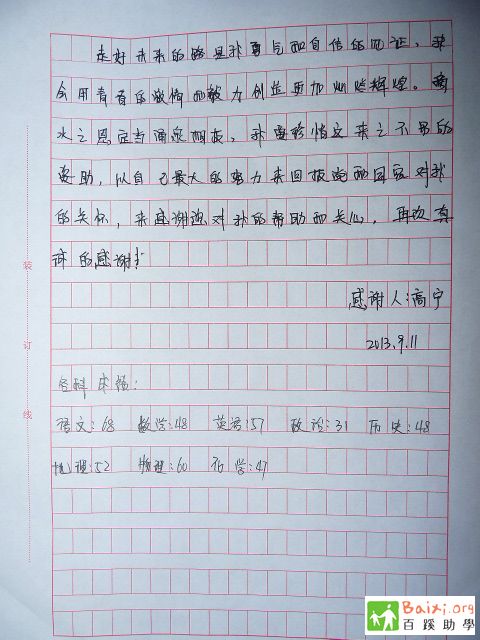 走好未来的路是我勇气和自信的见证,我
会用青春的激情和毅力创造更加灿烂辉煌。滴
水之恩定当涌泉相报,我要珍惜这来之不易的
资助,以自己最大的努力来回报党和国家对我
的关怀,来感谢您对我的帮助和关心,再次真
诚的感谢!
感谢人:高宁
2013.9.11
各科成绩:
语文:68 数学:48 英语:57 政治:31 历史:48
地理:52 物理:60 化学:47
装
订
线
Baixi.org
百蹊助學